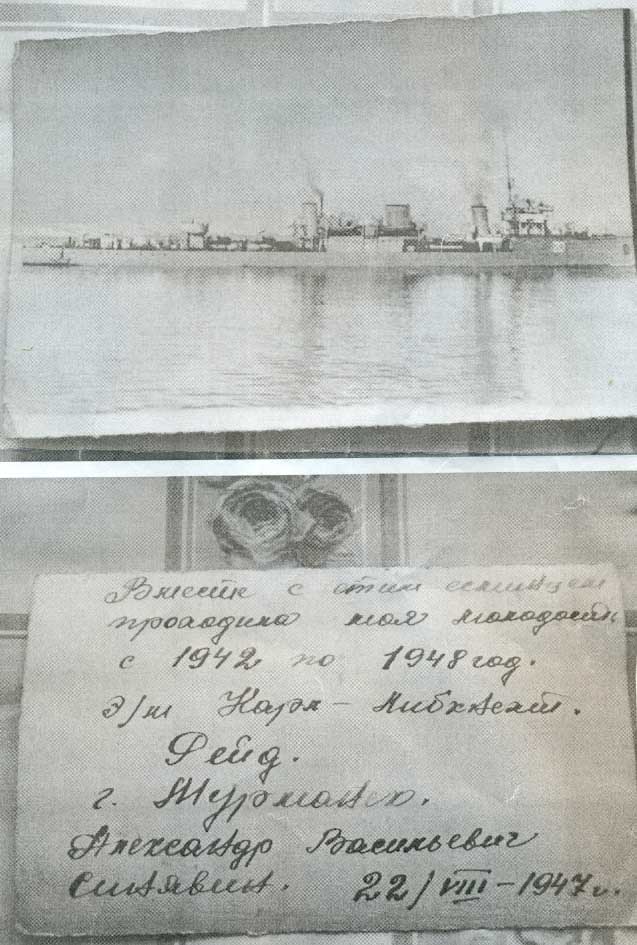 Вместе с этим есминцем
проходила моя молодость
с 1942 по 1948 год.
э/м Карл – Либкнехт.
Рейд.
г. Мурманск.
Александр Васильевич
Синявин. 22/VIII – 1947 г.